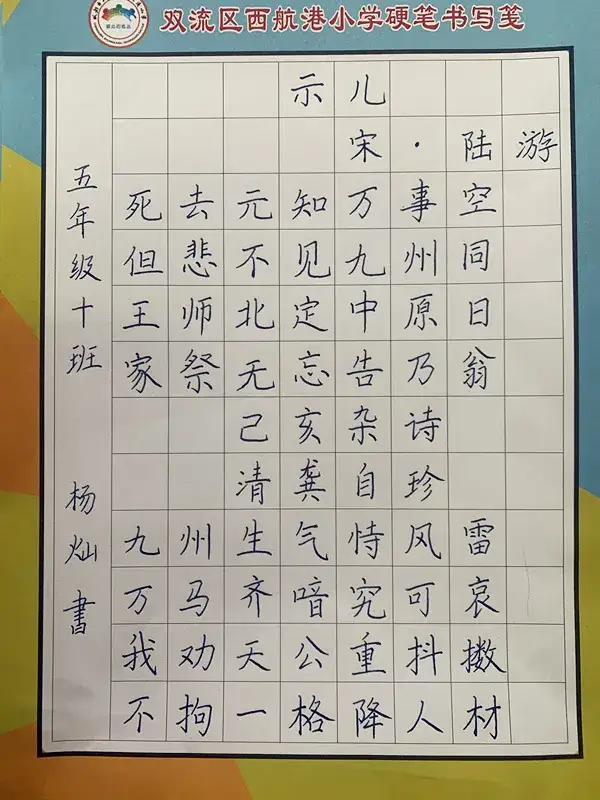 双流区西航港小学硬笔书写笺
示儿
宋·陆游
死去元知万事空
但悲不见九州同
王师北定中原日
家祭无忘告乃翁
己亥杂诗
清龚自珍
九州生气恃风雷
万马齐喑究可哀
我劝天公重抖擞
不拘一格降人材
五年级十班 杨灿書